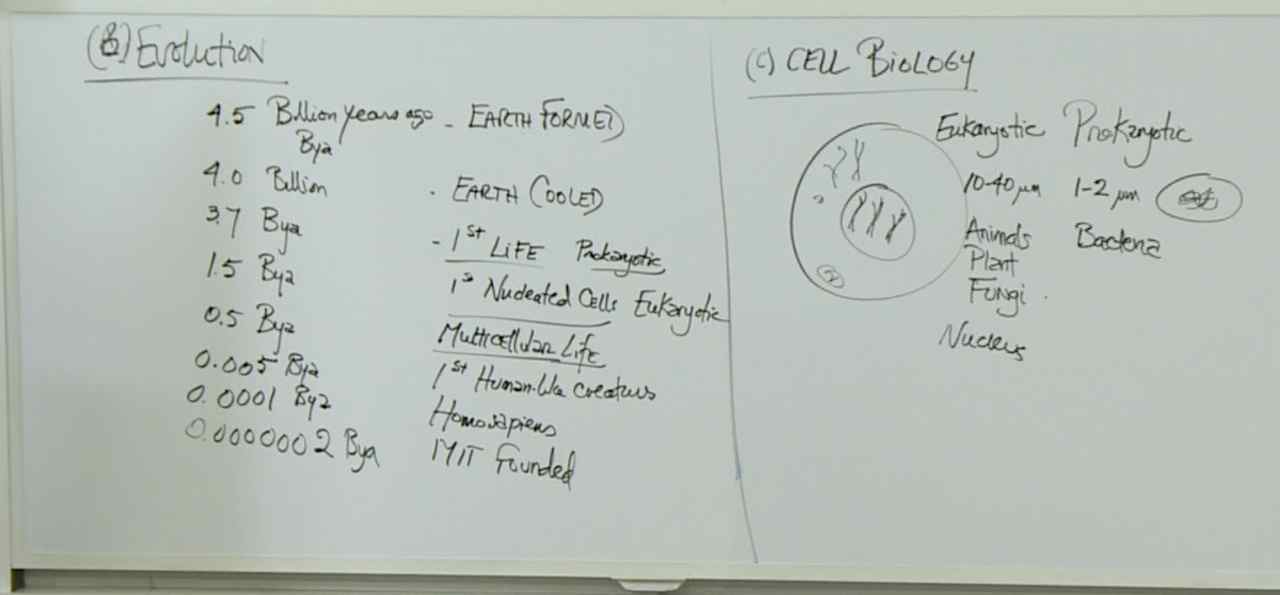 (B) Evolution
4.5 Billion years ago - EARTH FORMED
Bya
4.0 Billion . EARTH COOLED
3.7 Bya - 1st LIFE Prokaryotic
1.5 Bya 1st Nucleated Cells Eukaryotic
0.5 Bya Multicellular Life
0.005 Bya 1st Human-like creatures
0.0001 Bya Homosapiens
0.0000002 Bya MIT Founded
(C) CELL BIOLOGY
Eukaryotic Prokaryotic
10-40 μm 1-2 μm
Animals Bacteria
Plant
Fungi.
Nucleus